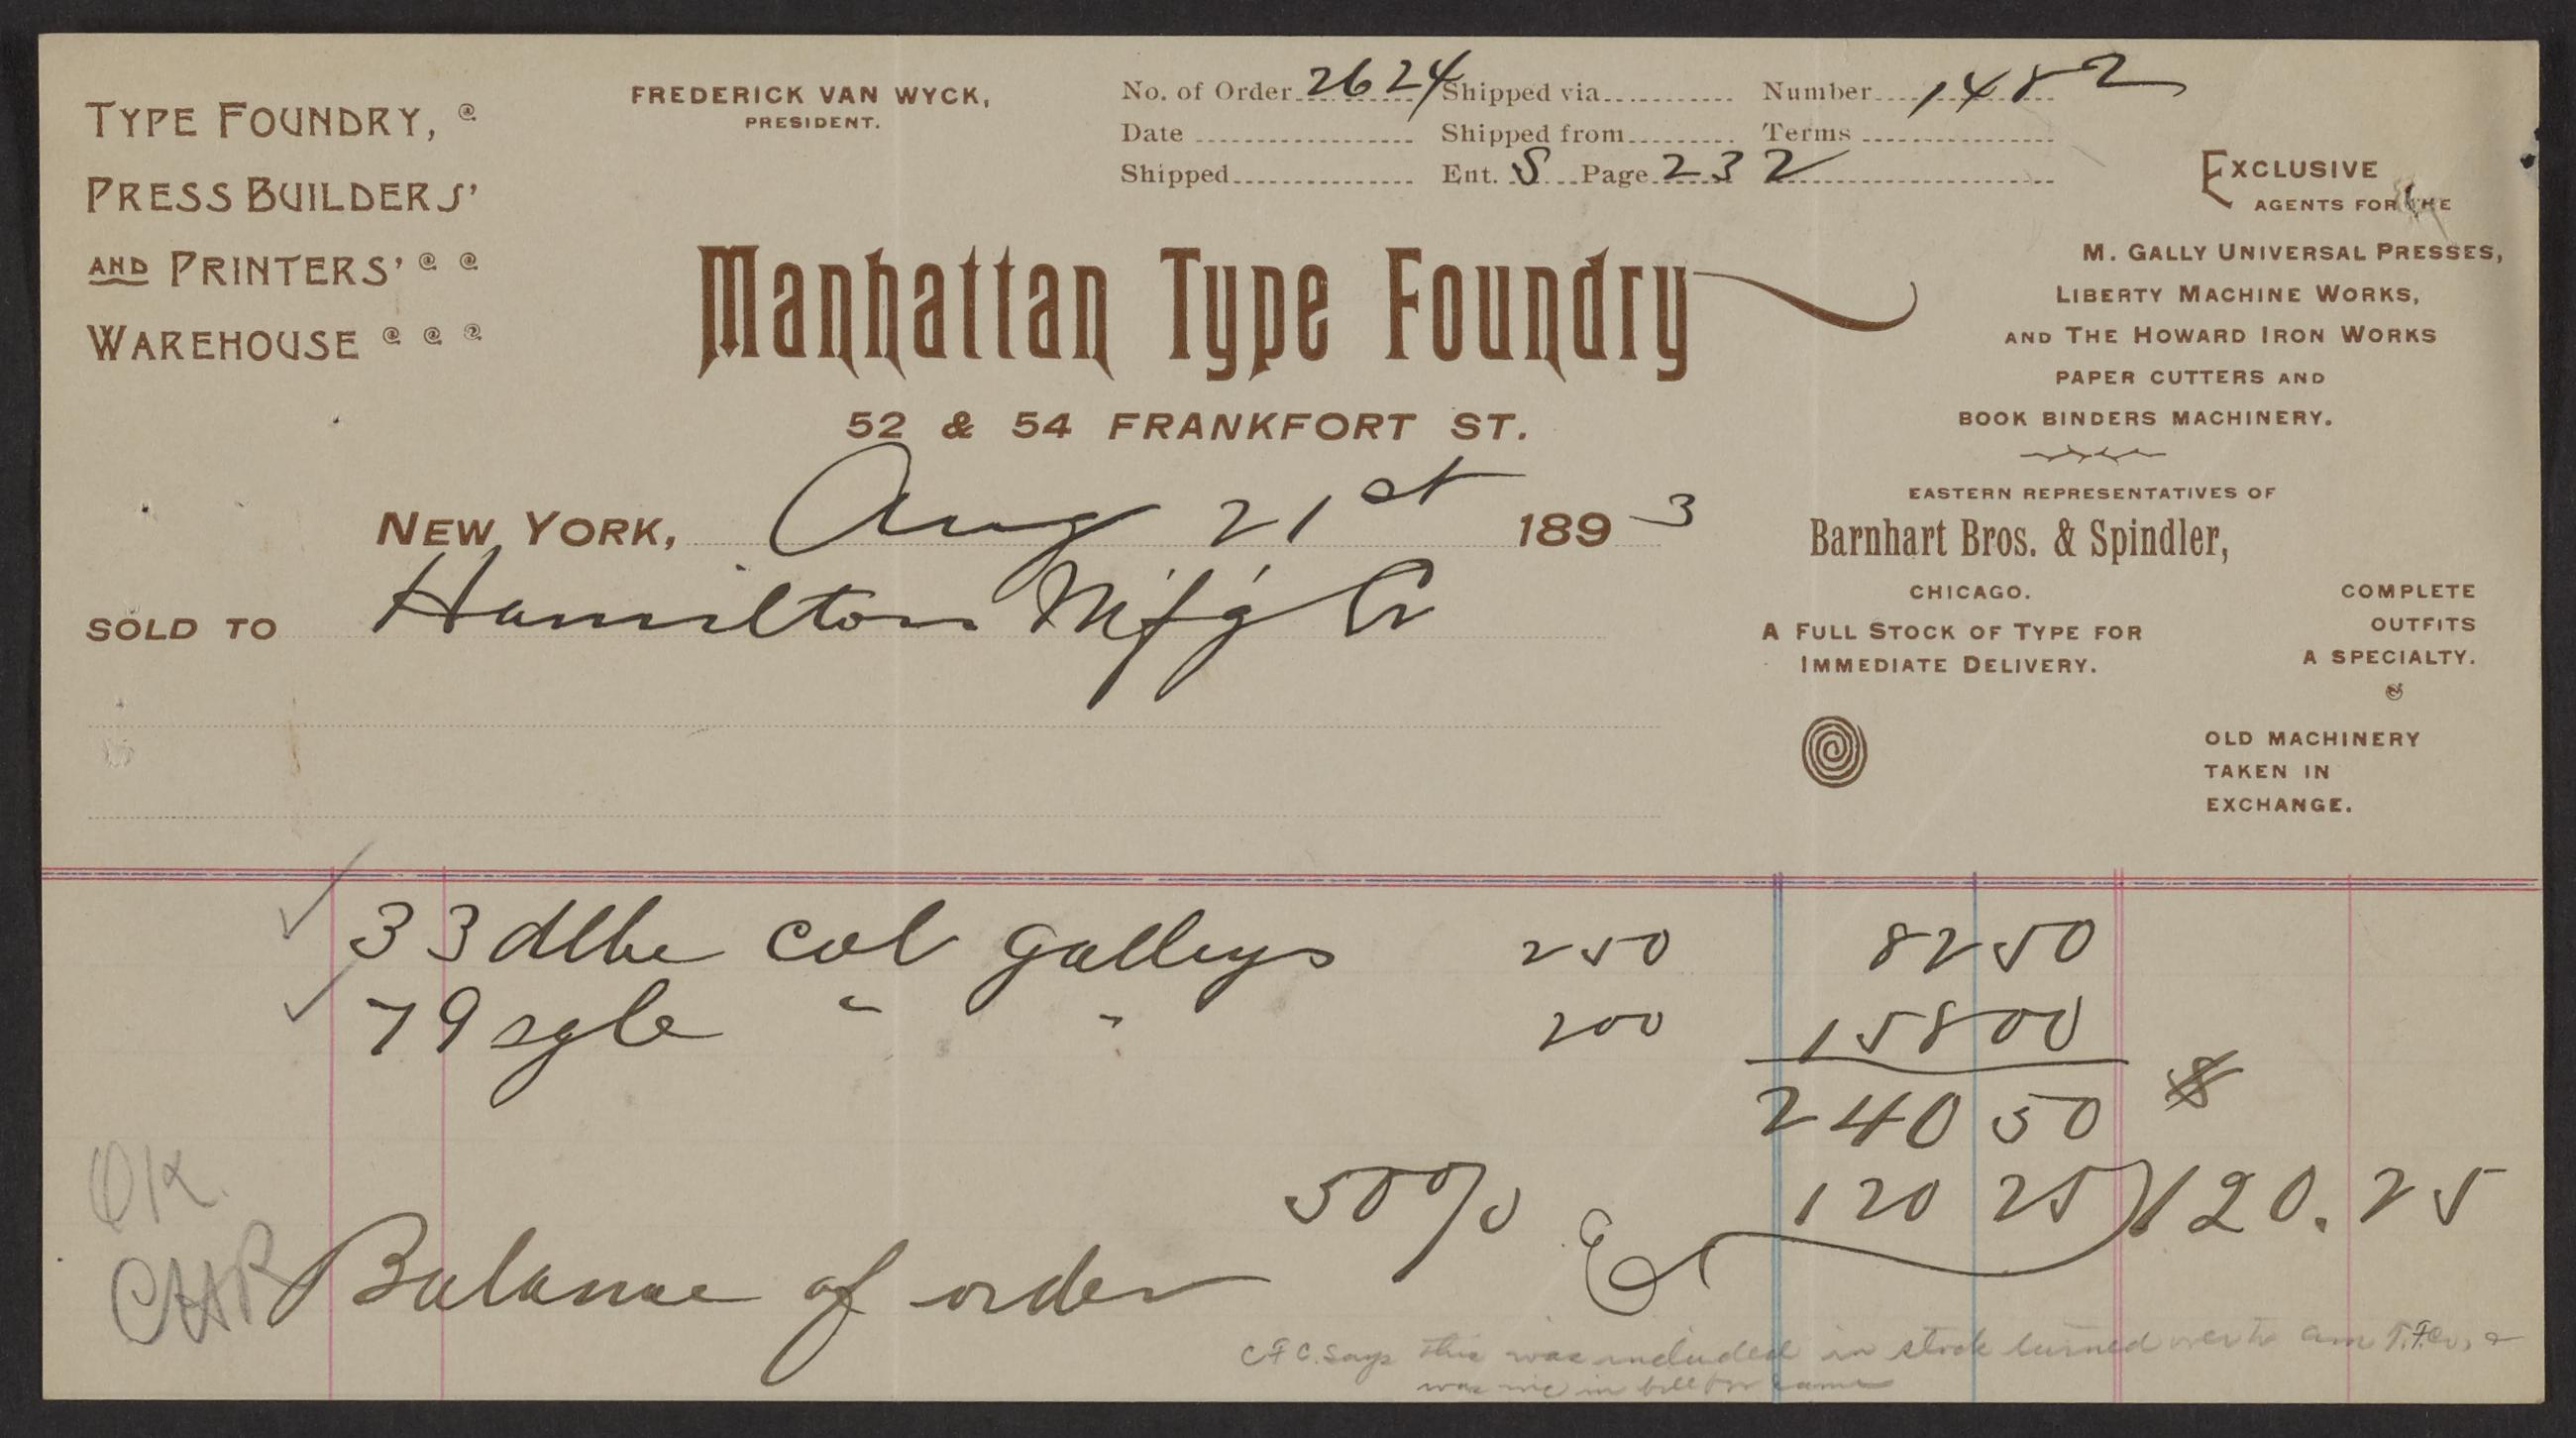 TYPE FOUNDRY,
PRESS BUILDERS'
AND PRINTERS'
WAREHOUSE
FREDERICK VAN WYCK,
PRESIDENT.
No. of Order 2624 Shipped via Number 1482
Date Shipped from Terms
Shipped Ent. S Page 232
Manhattan Type Foundry
52 & 54 FRANKFORT ST.
EXCLUSIVE
AGENTS FOR THE
M. GALLY UNIVERSAL PRESSES,
LIBERTY MACHINE WORKS,
AND THE HOWARD IRON WORKS
PAPER CUTTERS AND
BOOK BINDERS MACHINERY.
EASTERN REPRESENTATIVES OF
Barnhart Bros. & Spindler,
CHICAGO.
A FULL STOCK OF TYPE FOR
IMMEDIATE DELIVERY.
COMPLETE
OUTFITS
A SPECIALTY.
OLD MACHINERY
TAKEN IN
EXCHANGE.
NEW YORK, Aug 21st 1893
SOLD TO Hamilton M'f'g Co
33 dlbe col galleys 250 82 50
79 sgle " " 200 158 00
240 50
50% 120 25 120.25
OK
CHR
Balance of order
C F C. says this was included in stock turned over to Am T. F. Co, &
was in bill for same